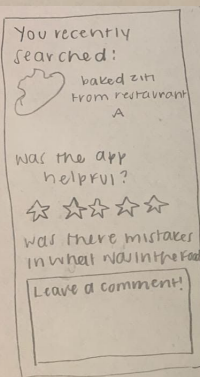 You recently
searched:
baked ziti
from restaurant
A
was the app
helpful?
was there mistakes
in what was in the food
Leave a comment!